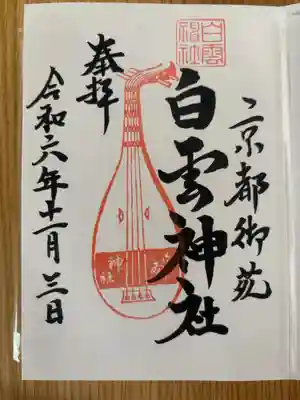 京都御苑
白雲
神社
白雲神社
神社
奉拝
令和六年十一月三日